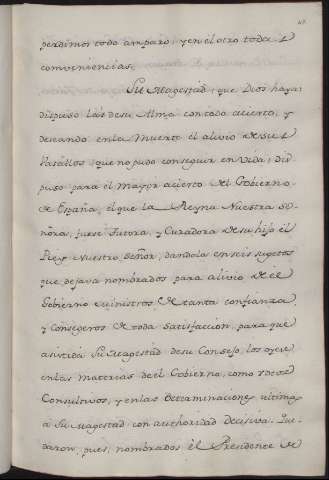 perdimos todo amparo, y en el otro todas
conveniencias.
Su Magestad, que Dios haya,
dispuso las de su Alma con todo acierto, y
deseando en la Muerte el alivio de sus
Vasallos, que no pudo conseguir en Vida, dis
puso para el mayor acierto del Gobierno
de España, el que la Reyna Nuestra Se-
ñora, fuese Tutora, y Curadora de su hijo el
Rey Nuestro Señor, dandola en seis sugetos
que dejava nombrados para alivio de el
Gobierno Ministros de tanta confianza
y Consegeros de toda satisfaccion, para que
asistida Su Magestad de su Consejo, los oyese
en las materias de el Gobierno, como
Consultivos, y en las Determinaciones ultimas
a Su Magestad con authoridad decisiva. Que
daron, pues, nombrados el Presidente de